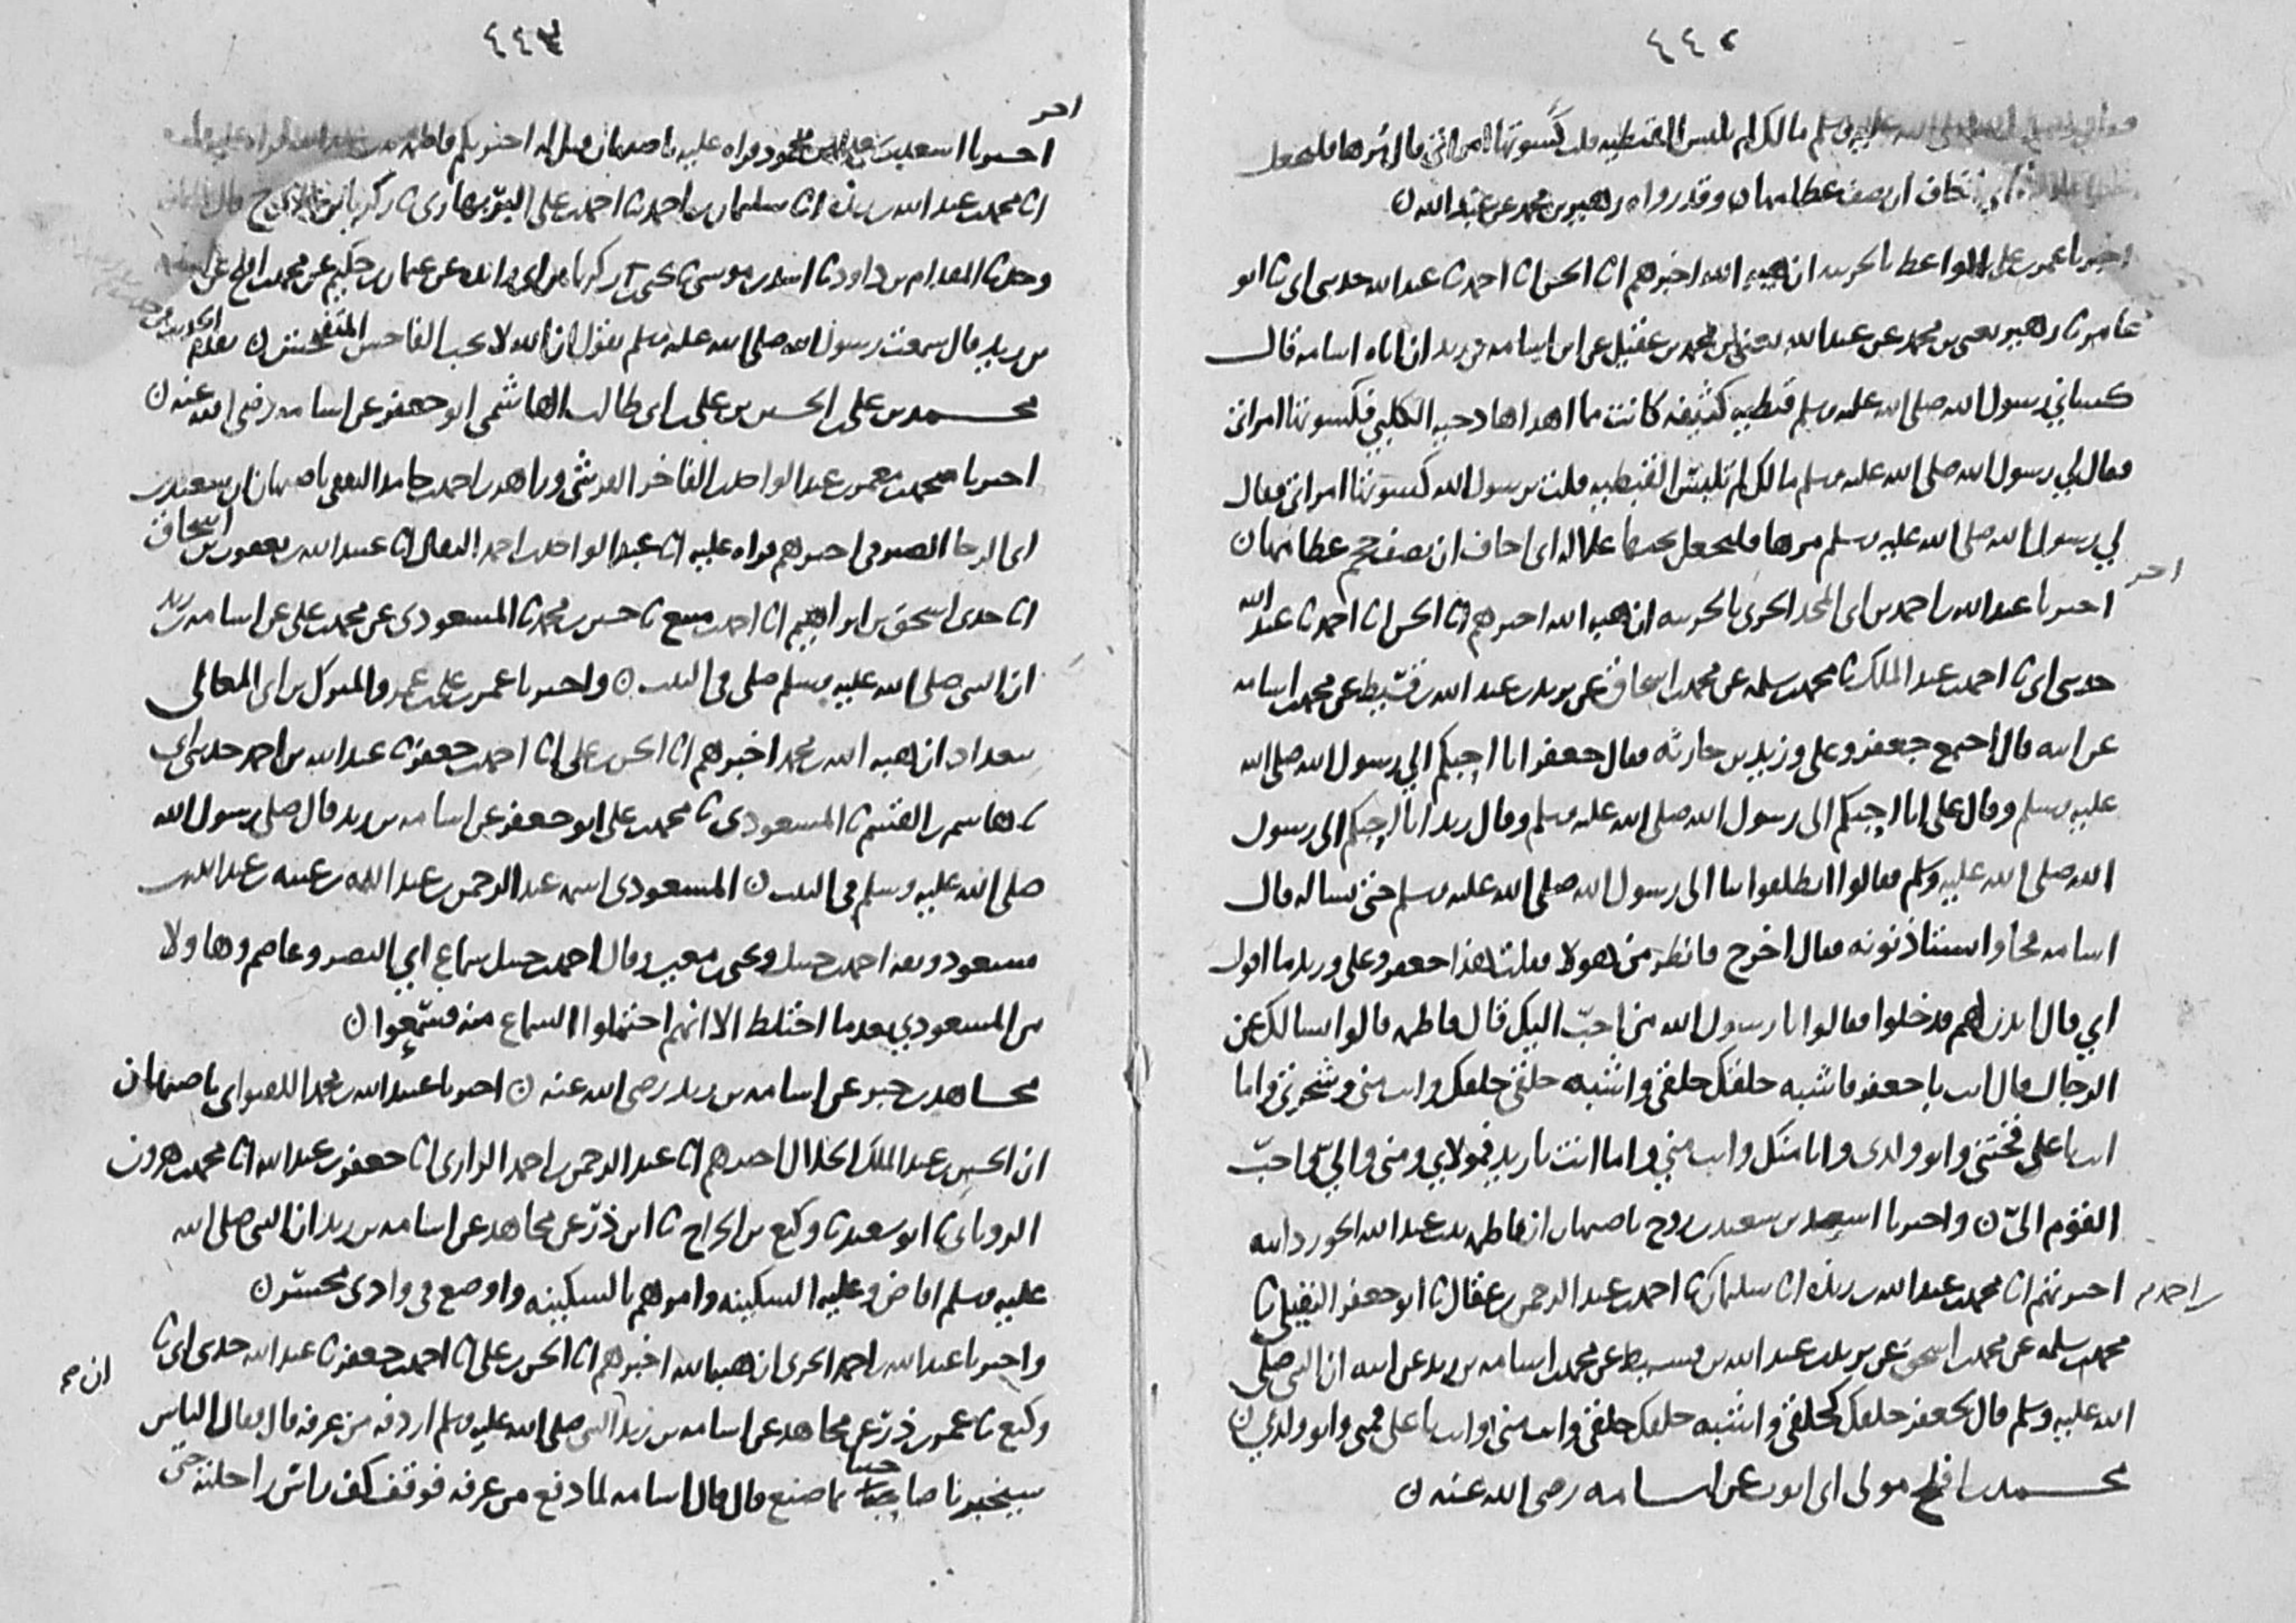 ٤٤٢
صلى الله عليه وسلم مالك لم تلبس القبطيه قلت كسوتها امراتي قال مرها فلتجعل
تخاف ان يصف عظامها ن وقد رواه زهير بن محمد عن عبد الله ن
اخبرنا عمر بن علي الواعظ بالحربيه ان هبه الله اخبرهم انا الحسن انا احمد نا عبد الله حدثني ابي نا ابو
عامر نا زهير يعني بن محمد عن عبد الله يعني ابن محمد بن عقيل عن ابن اسامه بن زيد ان اباه اسامه قال
كساني رسول الله صلى الله عليه وسلم قبطيه كثيفه كانت مما اهداها دحيه الكلبي فكسوتها امراتي
فقال لي رسول الله صلى الله عليه وسلم مالك لم تلبس القبطيه قلت يرسول الله كسوتها امراتي فقال
لي رسول الله صلى الله عليه وسلم مرها فلتجعل تحتها غلاله اني اخاف ان تصف حجم عظامها ن
اخر
اخبرنا عبد الله بن احمد بن ابي المجد الحربي بالحربيه ان هبه الله اخبرهم انا الحسن انا احمد نا عبد الله
حدثني ابي نا احمد بن عبد الملك نا محمد بن سلمه عن محمد بن اسحاق عن يزيد بن عبد الله بن قسيط عن محمد بن اسامه
عن ابيه قال اجتمع جعفر وعلي وزيد بن حارثه فقال جعفر انا احبكم الي رسول الله صلى الله
عليه وسلم وقال علي انا احبكم الى رسول الله صلى الله عليه وسلم وقال زيد انا احبكم الى رسول
الله صلى الله عليه وسلم فقالوا انطلقوا بنا الى رسول الله صلى الله عليه وسلم حتى نساله قال
اسامه فجاوا استاذنونه فقال اخرج فانظر من هولا فقلت هذا جعفر وعلي وزيد ما اقول
ابي قال ايذن لهم فدخلوا فقالوا يا رسول الله من احبّ اليك قال فاطمه قالوا نسالك عن
الرجال قال انت يا جعفر فاشبه خلقك خلقي واشبه خلقي خلقك وانت مني وشجرتي واما
انت يا علي فختني وابو ولدي وانا منك وانت مني واما انت يا زيد فمولاي ومني والي واحبّ
القوم اليّ ن واخبرنا اسعد بن سعيد بن روح باصبهان ان فاطمه بنت عبد الله الجوزدانيه
اخبرتهم انا محمد بن عبد الله بن ريذه انا سليمان نا احمد بن عبد الرحمن بن عقال نا ابو جعفر النفيلي نا
بن احمد
محمد بن سلمه عن محمد بن اسحق عن يزيد بن عبد الله بن قسيط عن محمد بن اسامه بن زيد عن ابيه ان النبي صلى
الله عليه وسلم قال لجعفر خلقك كخلقي واشبه خلقك خلقي وانت مني وانت يا علي فمني وابو ولدي ن
محمد بن افلح مولى ابي ايوب عن اسامه رضي الله عنه ن
٤٤٣
اخر
اخبرنا اسعد بن محمود قراه عليه باصبهان قيل له اخبرتكم فاطمه بنت عبد الله
انا محمد بن عبد الله بن ريذه انا سليمان بن احمد نا احمد بن علي البربهاري نا زكريا قال
وحدثنا المقدام بن داود نا اسد بن موسى نا يحيى بن زكريا بن ابي زائده عن عثمان بن حكيم عن محمد بن افلح عن اسامه
بن زيد قال سمعت رسول الله صلى الله عليه وسلم يقول ان الله لا يحب الفاحش المتفحش ن
محمد بن علي بن الحسين بن علي بن ابي طالب الهاشمي ابو جعفر عن اسامه رضي الله عنه ن
اخبرنا محمد بن معمر بن عبد الواحد بن الفاخر القرشي وزاهد بن احمد بن حامد الثقفي باصبهان ان سعيد بن
ابي الرجا الصيرفي اخبرهم قراه عليه انا عبد الواحد بن احمد البقال انا عبيد الله بن يعقوب بن اسحاق
انا جدي اسحق بن ابراهيم انا احمد بن منيع نا حسين بن محمد نا المسعودي عن محمد بن علي عن اسامه بن زيد
ان النبي صلى الله عليه وسلم صلى في البيت ن واخبرنا عمر بن علي بن عمر والمبرك بن ابي المعالي
ببغداد ان هبه الله بن محمد اخبرهم انا الحسن بن علي انا احمد بن جعفر نا عبد الله بن احمد حدثني ابي
نا هاشم بن القسم نا المسعودي نا محمد بن علي ابو جعفر عن اسامه بن زيد قال صلى رسول الله
صلى الله عليه وسلم في البيت ن المسعودي اسمه عبد الرحمن بن عبد الله بن عتبه بن عبد الله بن
مسعود وثقه احمد بن حنبل ويحيى بن معين وقال احمد بن حنبل سماع ابي النضر وعاصم وهاولا
من المسعودي بعد ما اختلط الا انهم احتملوا السماع منه فسمعوا ن
مجاهد بن جبر عن اسامه بن زيد رضي الله عنه ن اخبرنا عبد الله بن محمد اللفتواني باصبهان
ان الحسين بن عبد الملك الخلال اخبرهم انا عبد الرحمن بن احمد الرازي انا جعفر بن عبد الله انا محمد بن هرون
الروياني نا ابو سعيد نا وكيع بن الجراح نا ابن ذرّ عن مجاهد عن اسامه بن زيد ان النبي صلى الله
عليه وسلم افاض وعليه السكينه وامرهم بالسكينه واوضع في وادي محسّر ن
واخبرنا عبد الله بن احمد الحربي ان هبه الله اخبرهم انا الحسن بن علي انا احمد بن جعفر نا عبد الله حدثني ابي نا
وكيع نا عمر بن ذرّ عن مجاهد عن اسامه بن زيد النبي صلى الله عليه وسلم اردفه من عرفه قال فقال الناس
ان صح
سيخبرنا صاحبنا ما صنع قال قال اسامه لما دفع من عرفه فوقف كف راس راحلته حتى